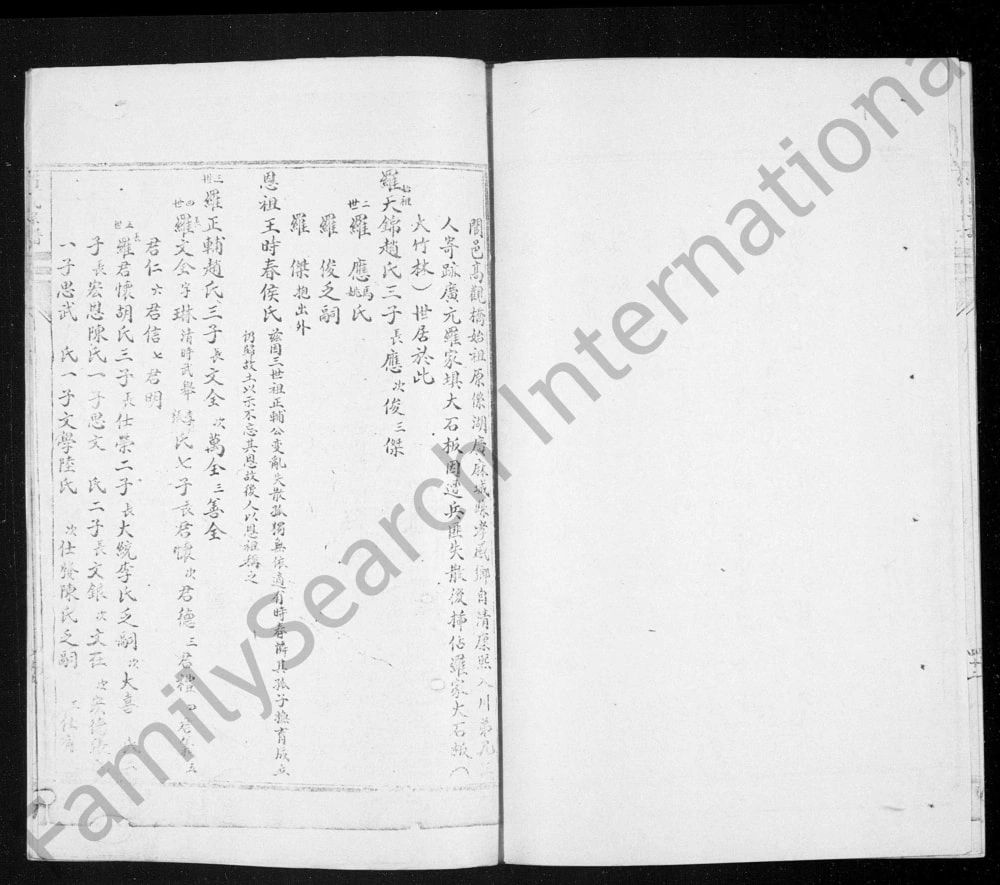 閬邑高觀橋始祖原係湖廣麻城縣孝感鄉自清康熙入川弟兄
人寄跡廣元羅家埧大石板因遭兵匪失散後插佔羅家大石板（
大竹林）世居於此
始祖羅大錦趙氏三子長應次俊三傑
二世羅應馮姚氏
羅俊乏嗣
羅傑抱出外
恩祖王時春侯氏
茲因三世祖正輔公变亂失散孤獨無依適有時春辭其孤子撫育成立
仍歸故土以示不忘其恩故後人以恩祖稱之
三世羅正輔趙氏三子長文全次萬全三善全
四世長羅文全字琳清時武舉李張氏七子長君懷次君德三君禮四君 五
君仁六君信七君明
五世長羅君懷胡氏三子長仕榮二子長大統李氏乏嗣次大喜
子長宏恩陳氏一子思文 氏二子長文銀次文在次宏德
一子思武 氏一子文學陸氏 次仕 陳氏乏嗣 三仕
FamilySearch International